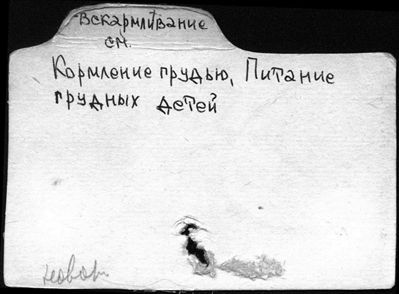 Вскармливание
см.
Кормление грудью, Питание
грудных детей